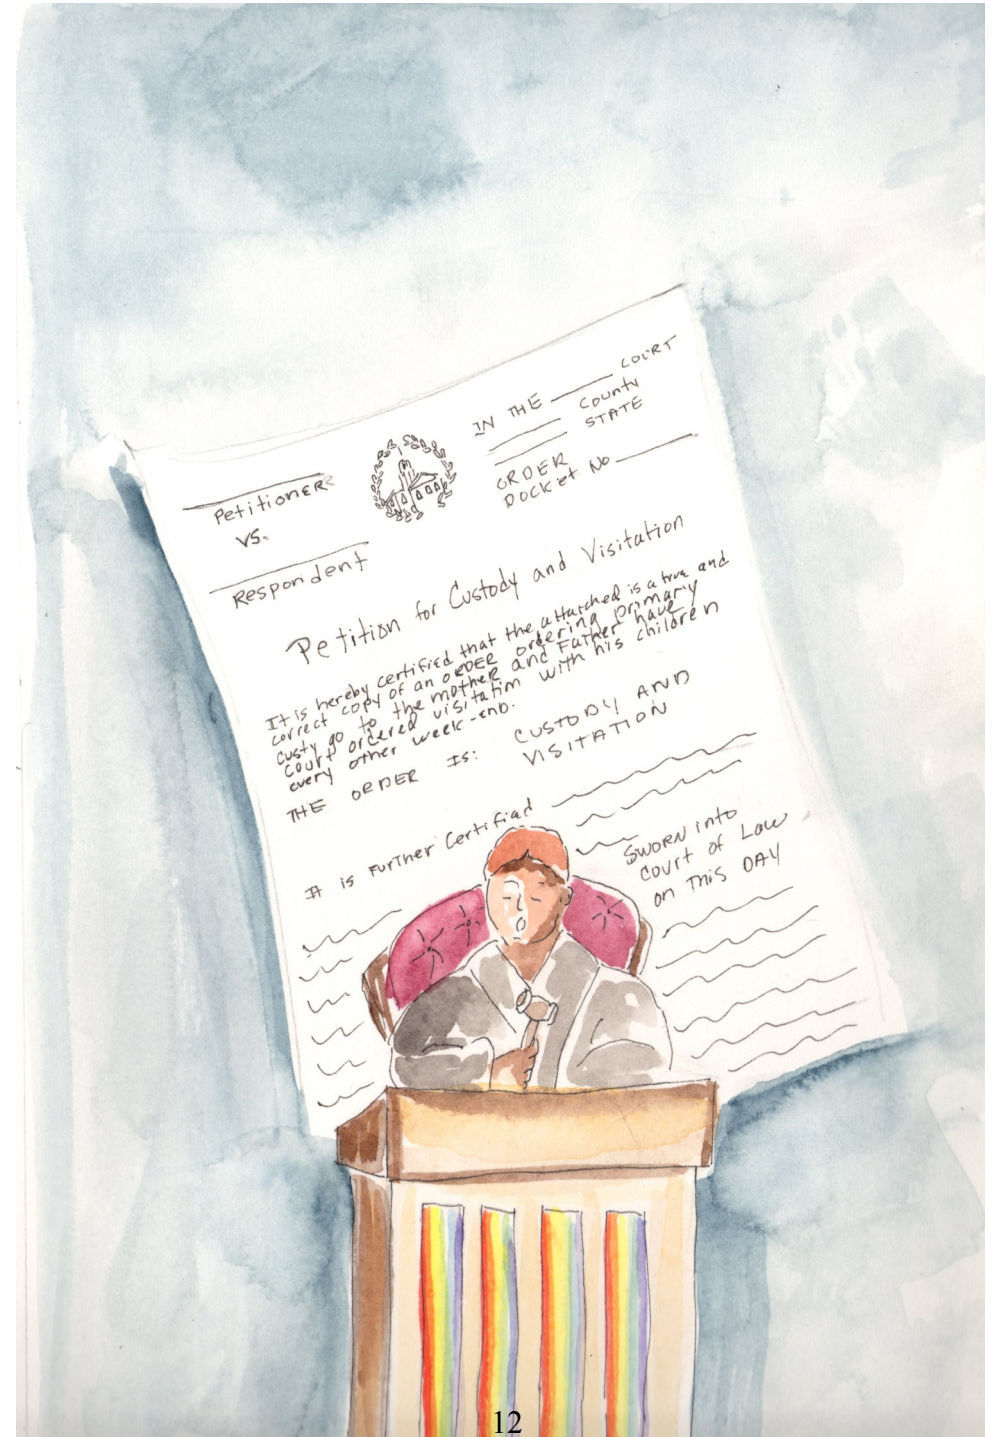 IN THE ______ COURT
______ County
______ STATE
ORDER
DOCKET NO ______
Petitioner
vs.
Respondent
Petition for Custody and Visitation
It is hereby certified that the attatched is a true and
correct copy of an ORDER ordering primary
custy go to the mother and Father have
court ordered visitation with his children
every other week-end.
THE ORDER IS: CUSTODY AND
VISITATION
It is Further Certified
SWORN into
Court of Law
on This DAY
12